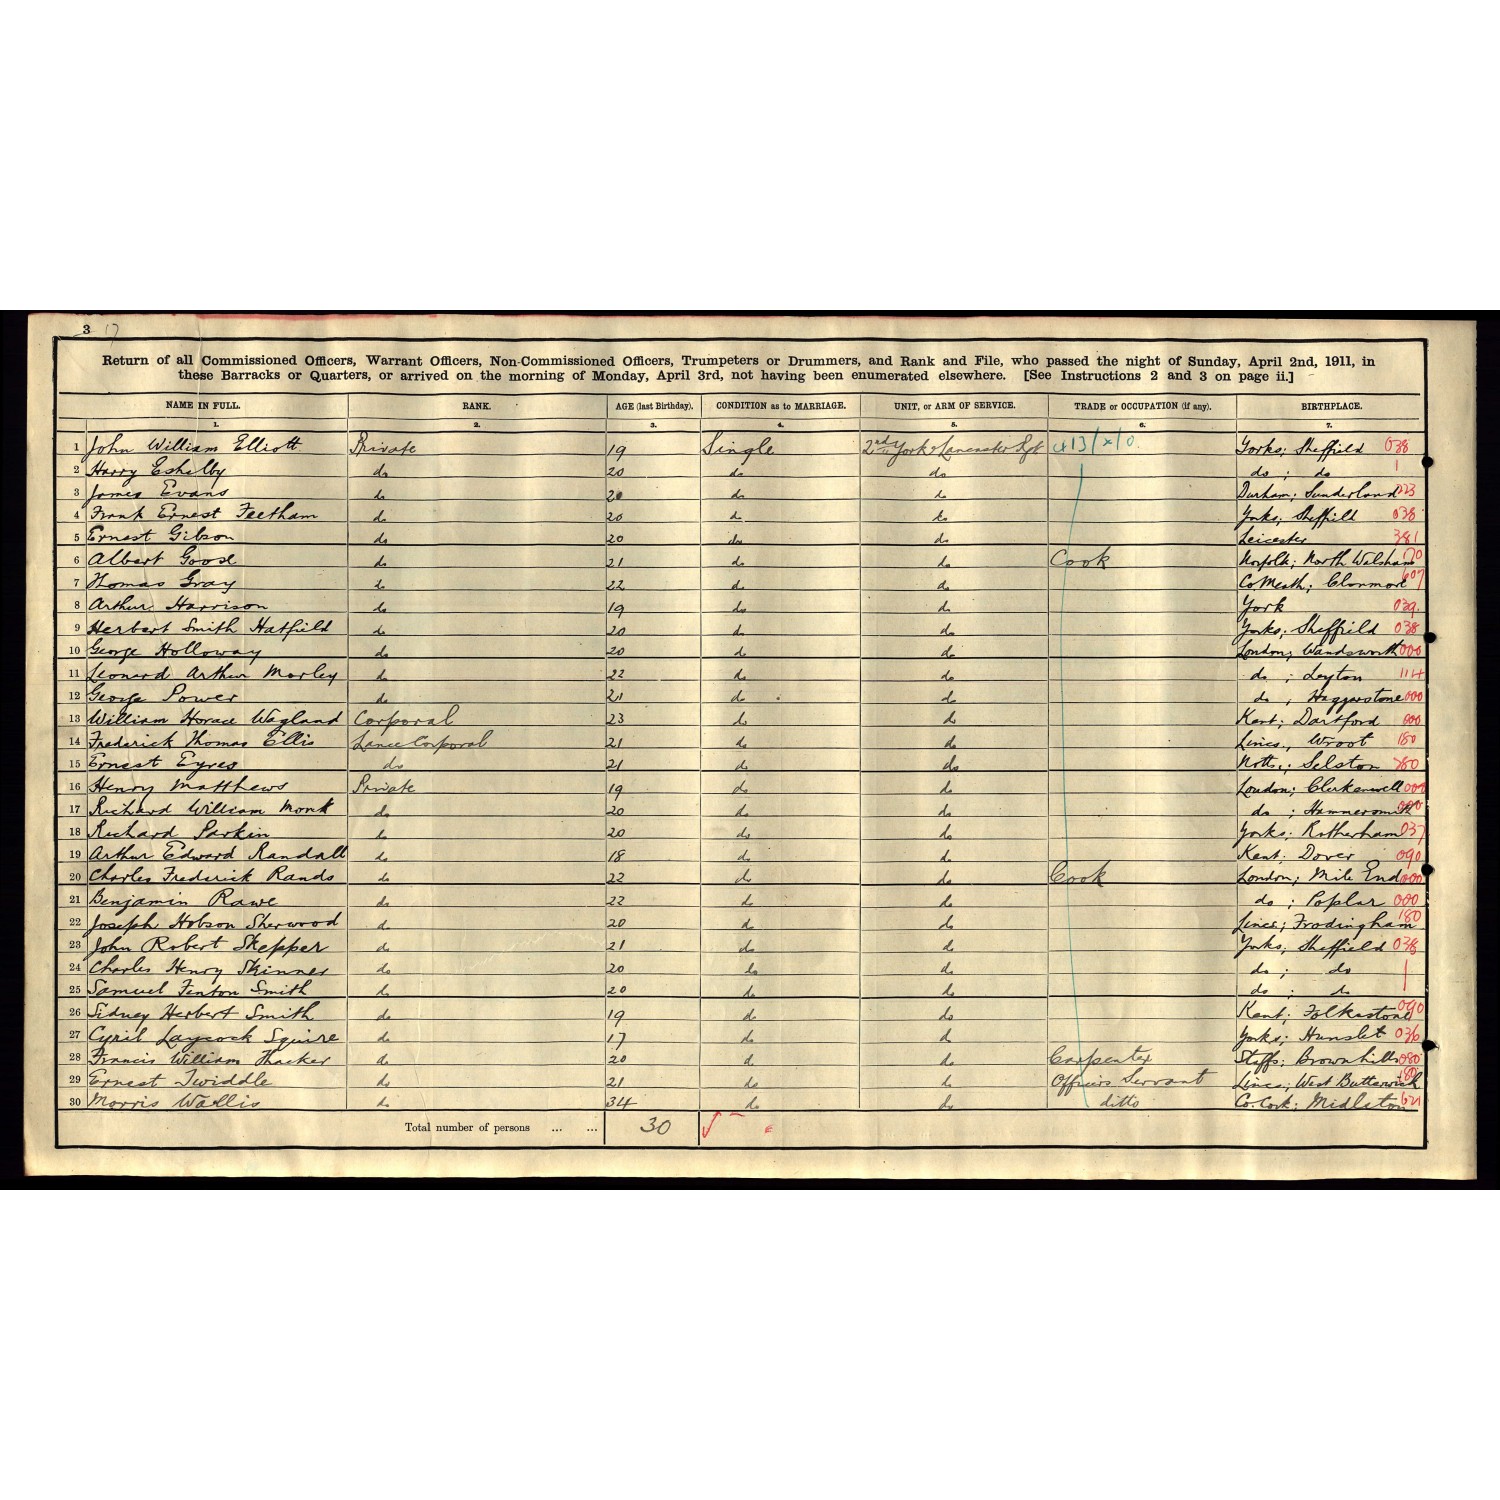 3 17
Return of all Commissioned Officers, Warrant Officers, Non-Commissioned Officers, Trumpeters or Drummers, and Rank and File, who passed the night of Sunday, April 2nd, 1911, in
these Barracks or Quarters, or arrived on the morning of Monday, April 3rd, not having been enumerated elsewhere. [See Instructions 2 and 3 on page ii.]
NAME IN FULL. RANK. AGE (last Birthday). CONDITION as to MARRIAGE. UNIT, OR ARM OF SERVICE. TRADE or OCCUPATION (if any). BIRTHPLACE.
1. 2. 3. 4. 5. 6. 7.
1 John William Elliott Private 19 Single 2nd York & Lancaster Rgt Yorks; Sheffield 038
2 Harry Eshelby do 20 do do do ; do
3 James Evans do 20 do do Durham; Sunderland
4 Frank Ernest Feetham do 20 do do Yorks; Sheffield 038
5 Ernest Gibson do 20 do do Leicester 381
6 Albert Goose do 21 do do Cook Norfolk; North Walsham
7 Thomas Gray do 22 do do Co. Meath; Clonmore 607
8 Arthur Harrison do 19 do do York 039.
9 Herbert Smith Hatfield do 20 do do Yorks; Sheffield 038
10 George Holloway do 20 do do London; Wandsworth 000
11 Leonard Arthur Morley do 22 do do do ; Leyton 114
12 George Power do 21 do do do , Haggerstone 000
13 William Horace Wagland Corporal 23 do do Kent; Dartford
14 Frederick Thomas Ellis Lance Corporal 21 do do Lincs., Wroot 180
15 Ernest Eyres do 21 do do Notts.; Selston
16 Henry Matthews Private 19 do do London; Clerkenwell 000
17 Richard William Monk do 20 do do do ; Hammersmith 000
18 Richard Parkin do 20 do do Yorks; Rotherham 037
19 Arthur Edward Randall do 18 do do Kent; Dover 090
20 Charles Frederick Rands do 22 do do Cook London; Mile End 000
21 Benjamin Rawe do 22 do do do ; Poplar 000
22 Joseph Hobson Sherwood do 20 do do Lincs; Frodingham 180
23 John Robert Skepper do 21 do do Yorks; Sheffield 038
24 Charles Henry Skinner do 20 do do do ; do
25 Samuel Fenton Smith do 20 do do do ; do
26 Sidney Herbert Smith do 19 do do Kent; Folkestone 090
27 Cyril Laycock Squire do 17 do do Yorks; Hunslet 036
28 Francis William Thacker do 20 do do Carpenter Staffs; Brownhills
29 Ernest Twiddle do 21 do do Officers Servant Lincs; West Butterwick
30 Morris Wallis do 34 do do ditto Co. Cork; Midleton 621
Total number of persons ... ... 30